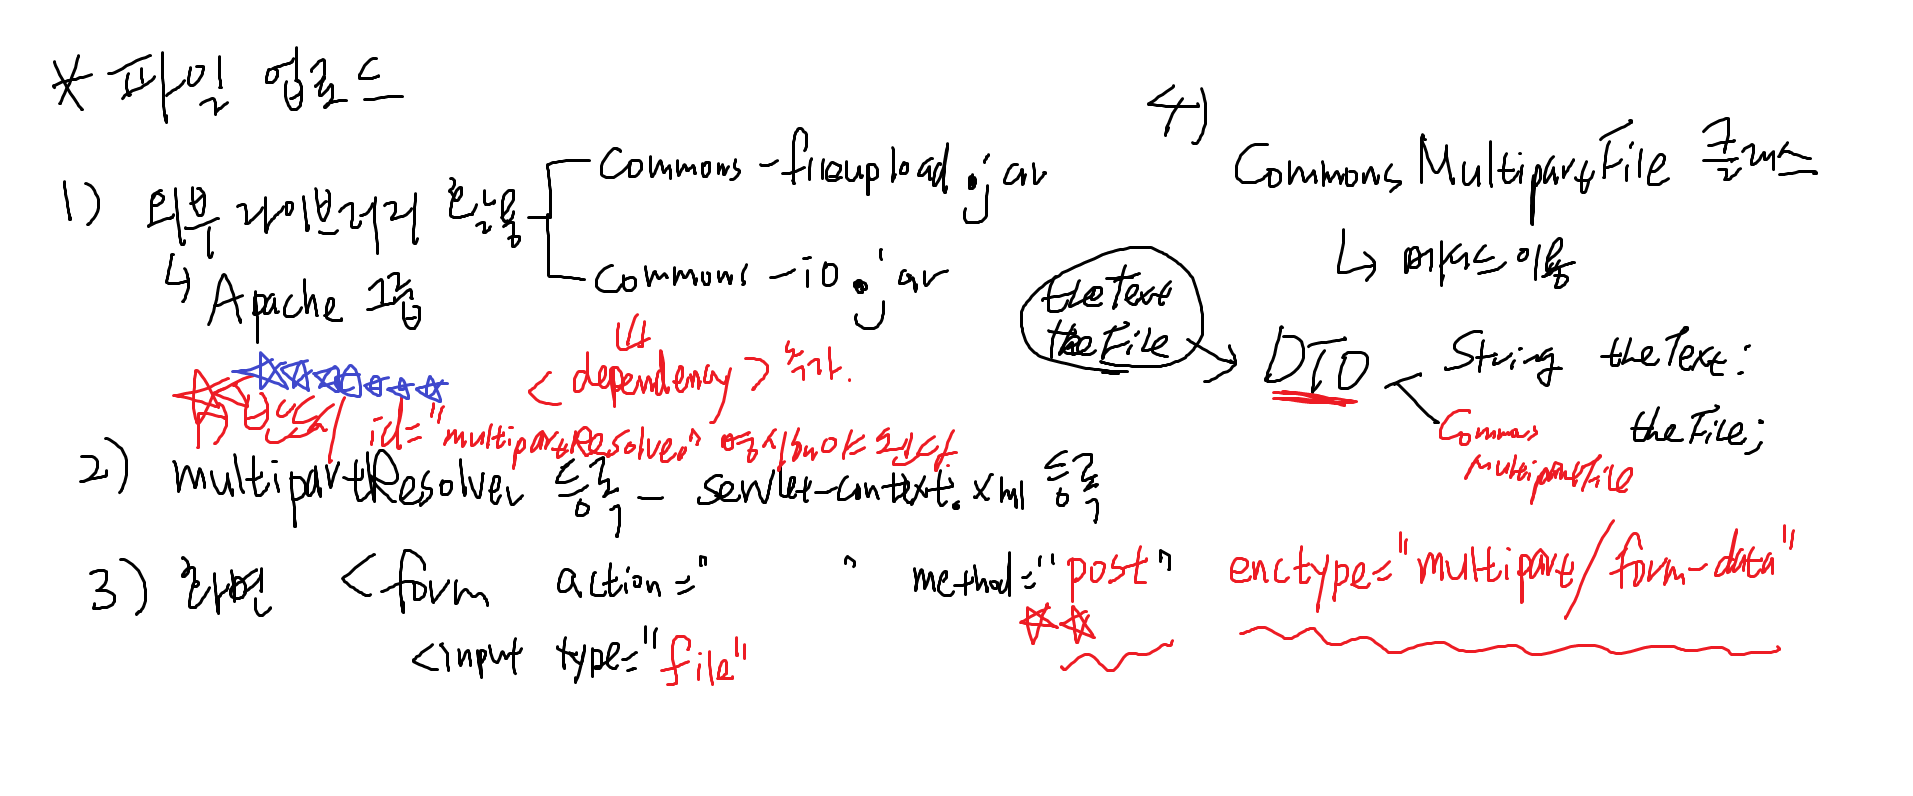 * 파일 업로드
1) 외부 라이브러리 활용
commons-fileupload.jar
commons-io.jar
↳ Apache 그룹
<dependency> 추가.
반드시 id="multipartResolver" 명시해야 된다
2) multipartResolver 등록 - servlet-context.xml 등록
3) 화면 <form action="        " method="post" enctype="multipart/form-data"
<input type="file"
4)
CommonsMultipartFile 클래스
↳ 메서드 이용
theText
theFile
→ DTO
String theText;
Commons
MultipartFile
theFile;